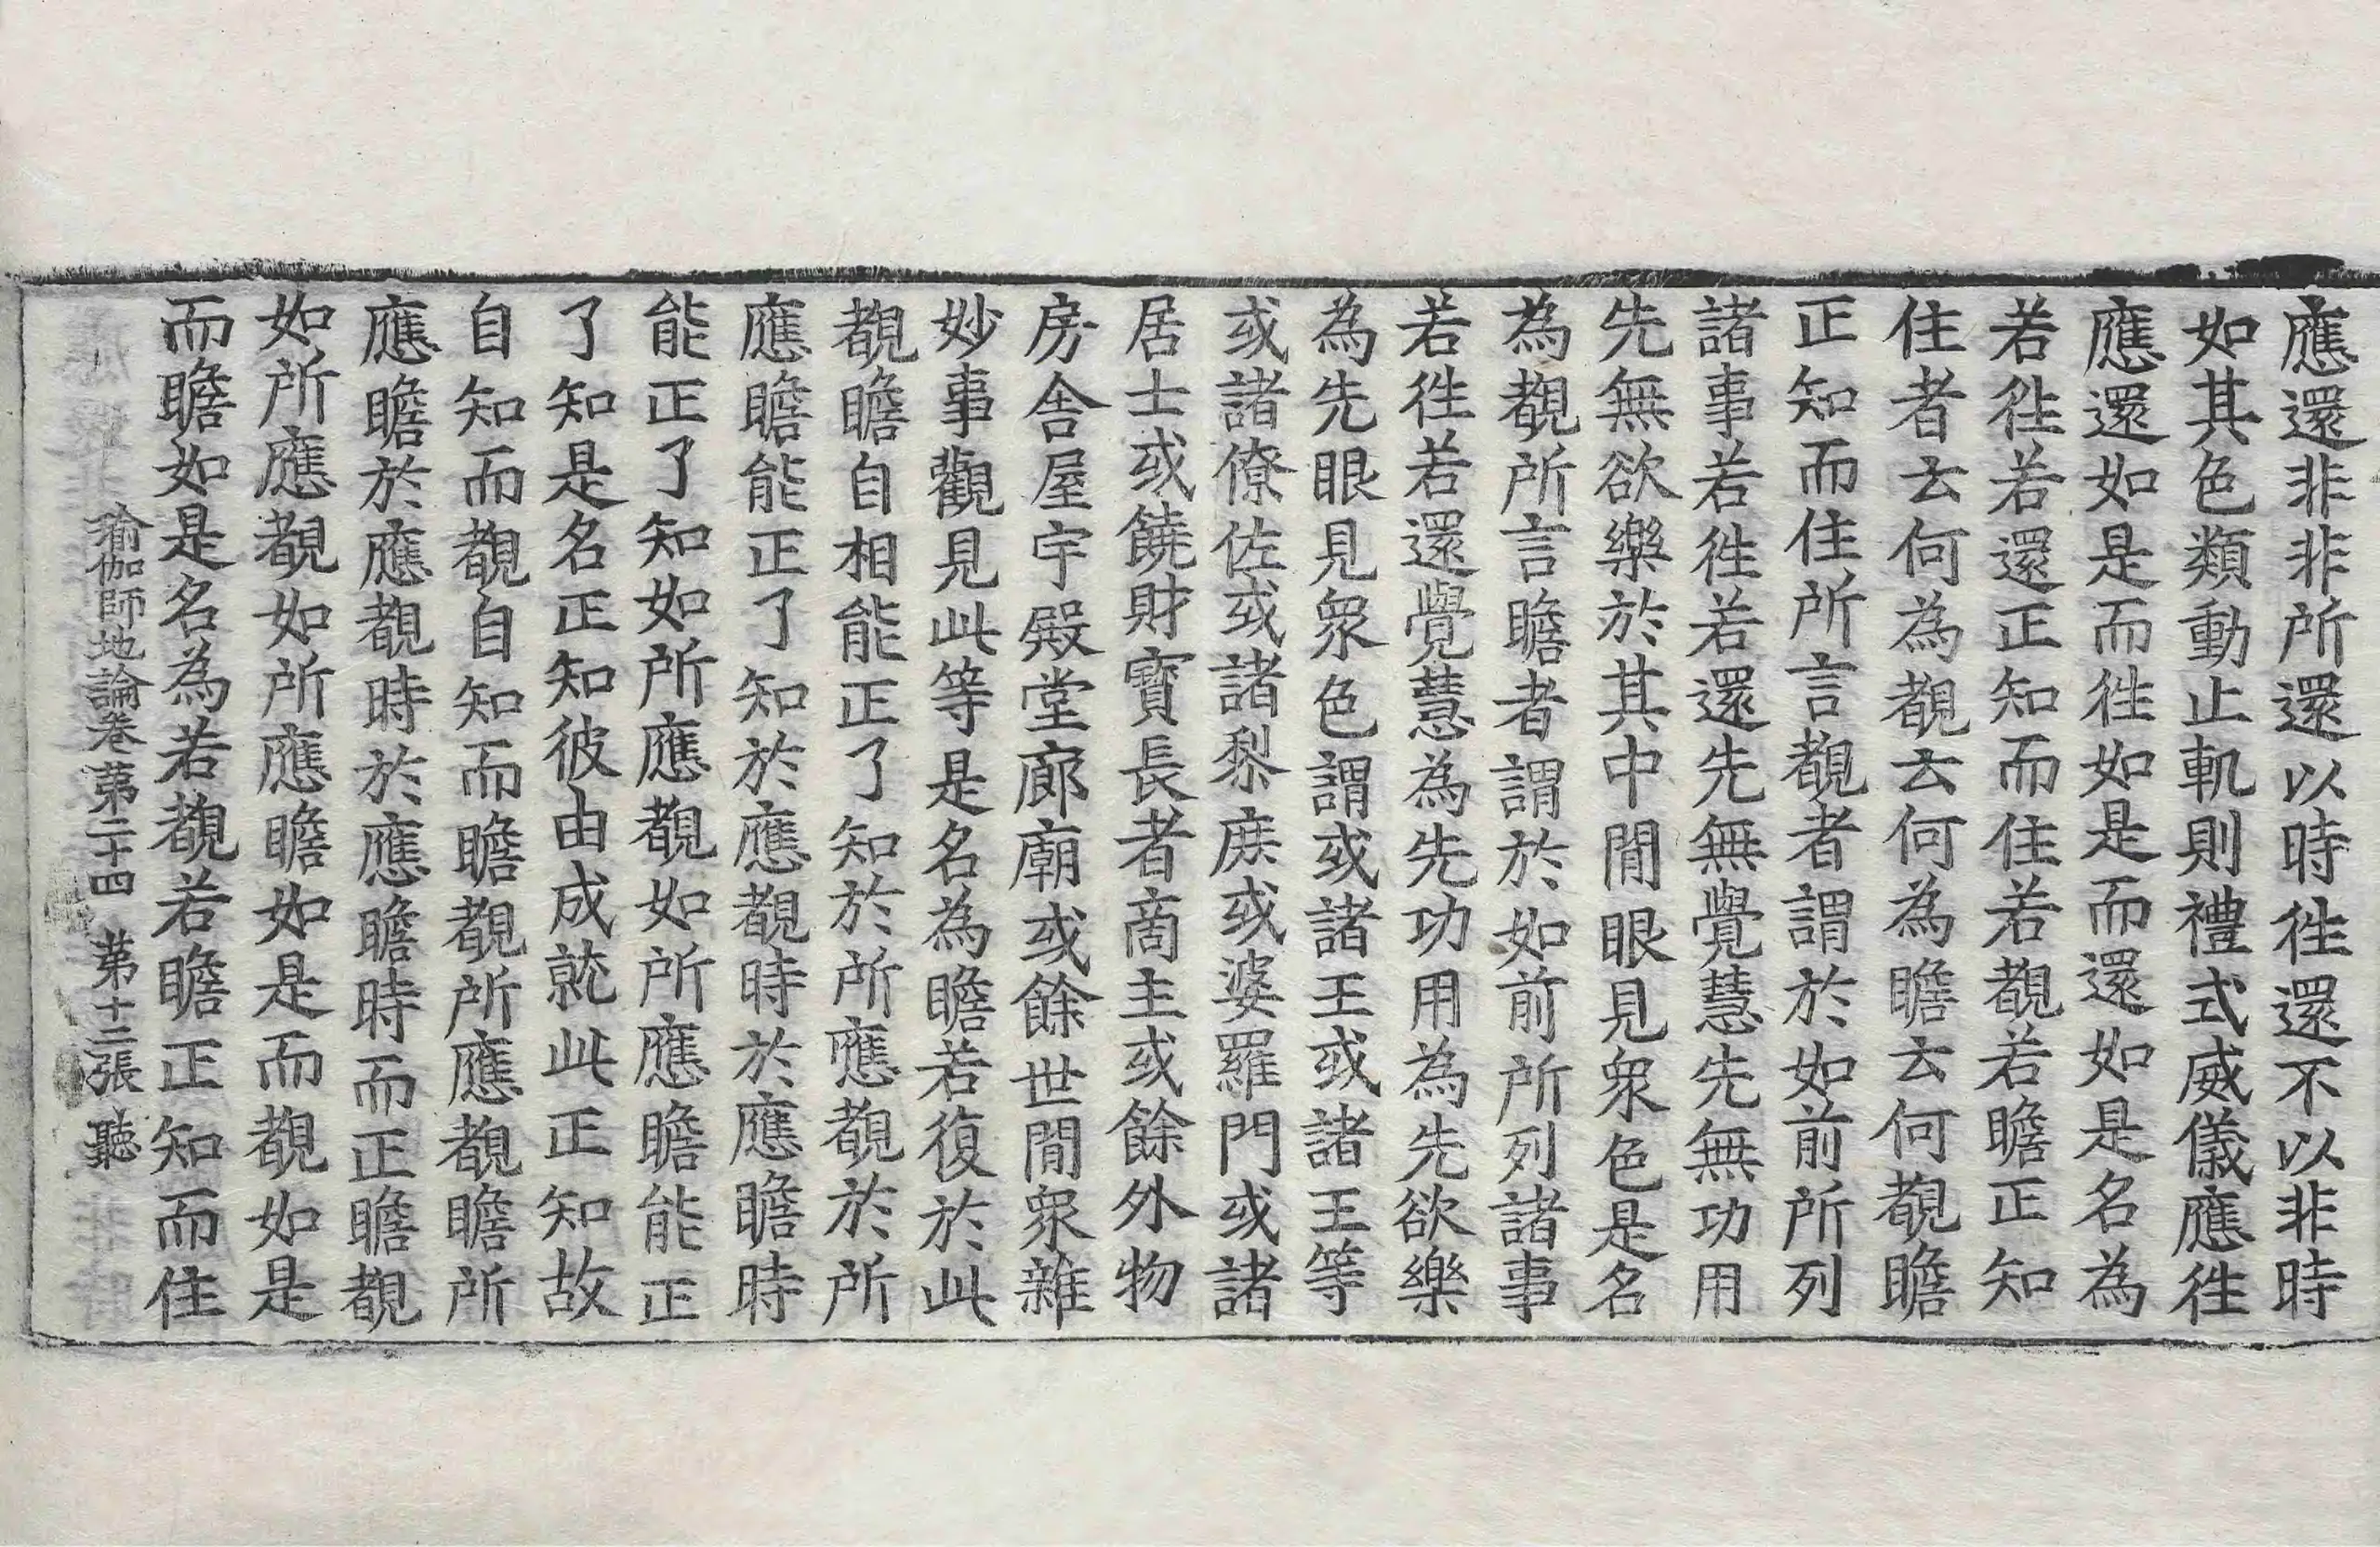 應還非非所還以時徃還不以非時
如其色類動止軌則禮式威儀應徃
應還如是而徃如是而還如是名為
若徃若還正知而住若覩若瞻正知
住者云何為覩云何為瞻云何覩瞻
正知而住所言覩者謂於如前所列
諸事若徃若還先無覺慧先無功用
先無欲樂於其中閒眼見衆色是名
為覩所言瞻者謂於如前所列諸事
若徃若還覺慧為先功用為先欲樂
為先眼見衆色謂或諸王或諸王等
或諸僚佐或諸黎庶或婆羅門或諸
居士或饒財寶長者商主或餘外物
房舍屋宇殿堂廊廟或餘世閒衆雜
妙事觀見此等是名為瞻若復於此
覩瞻自相能正了知於所應覩於所
應瞻能正了知於應覩時於應瞻時
能正了知如所應覩如所應瞻能正
了知是名正知彼由成就此正知故
自知而覩自知而瞻覩所應覩瞻所
應瞻於應覩時於應瞻時而正瞻覩
如所應覩如所應瞻如是而覩如是
而瞻如是名為若覩若瞻正知而住
瑜伽師地論卷苐二十四 苐十三張 聽